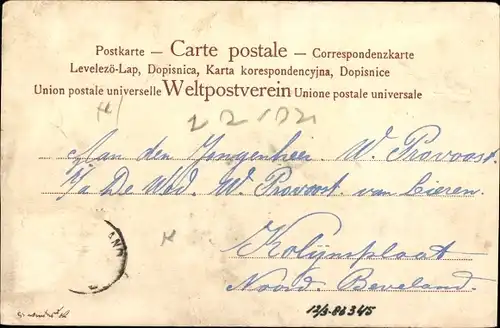 Postkarte — Carte postale — Correspondenzkarte
Levelezö-Lap, Dopisnica, Karta korespondencyjna, Dopisnice
Union postale universelle Weltpostverein Unione postale universale
Aan den Jongenheer W. Provoost.
p/a De Wed. W. Provoost van Lieren.
Kolijnplaat
Noord. Beveland.
13/3-86345